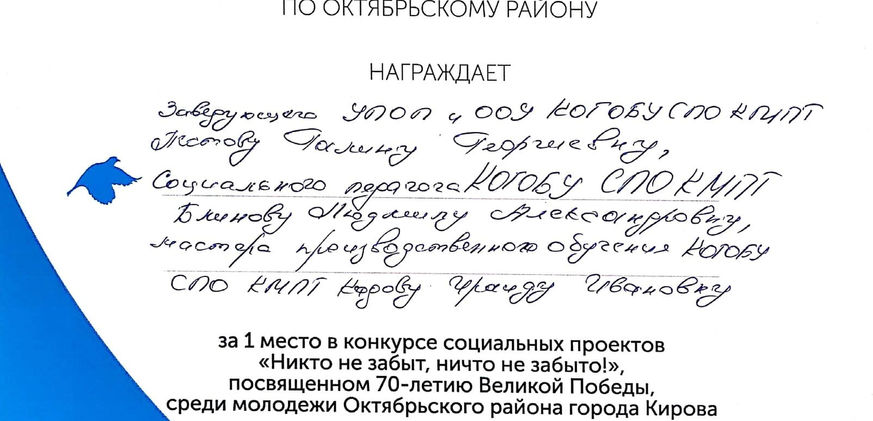 ПО ОКТЯБРЬСКОМУ РАЙОНУ
НАГРАЖДАЕТ
Заведующего УПОП и ООУ КОГОБУ СПО КМПТ
Галину Георгиевну,
Социального педагога КОГОБУ СПО КМПТ
Блинову Людмилу Александровну,
мастера производственного обучения КОГОБУ
СПО КМПТ Ираиду Ивановну
за 1 место в конкурсе социальных проектов
«Никто не забыт, ничто не забыто!»,
посвященном 70-летию Великой Победы,
среди молодежи Октябрьского района города Кирова